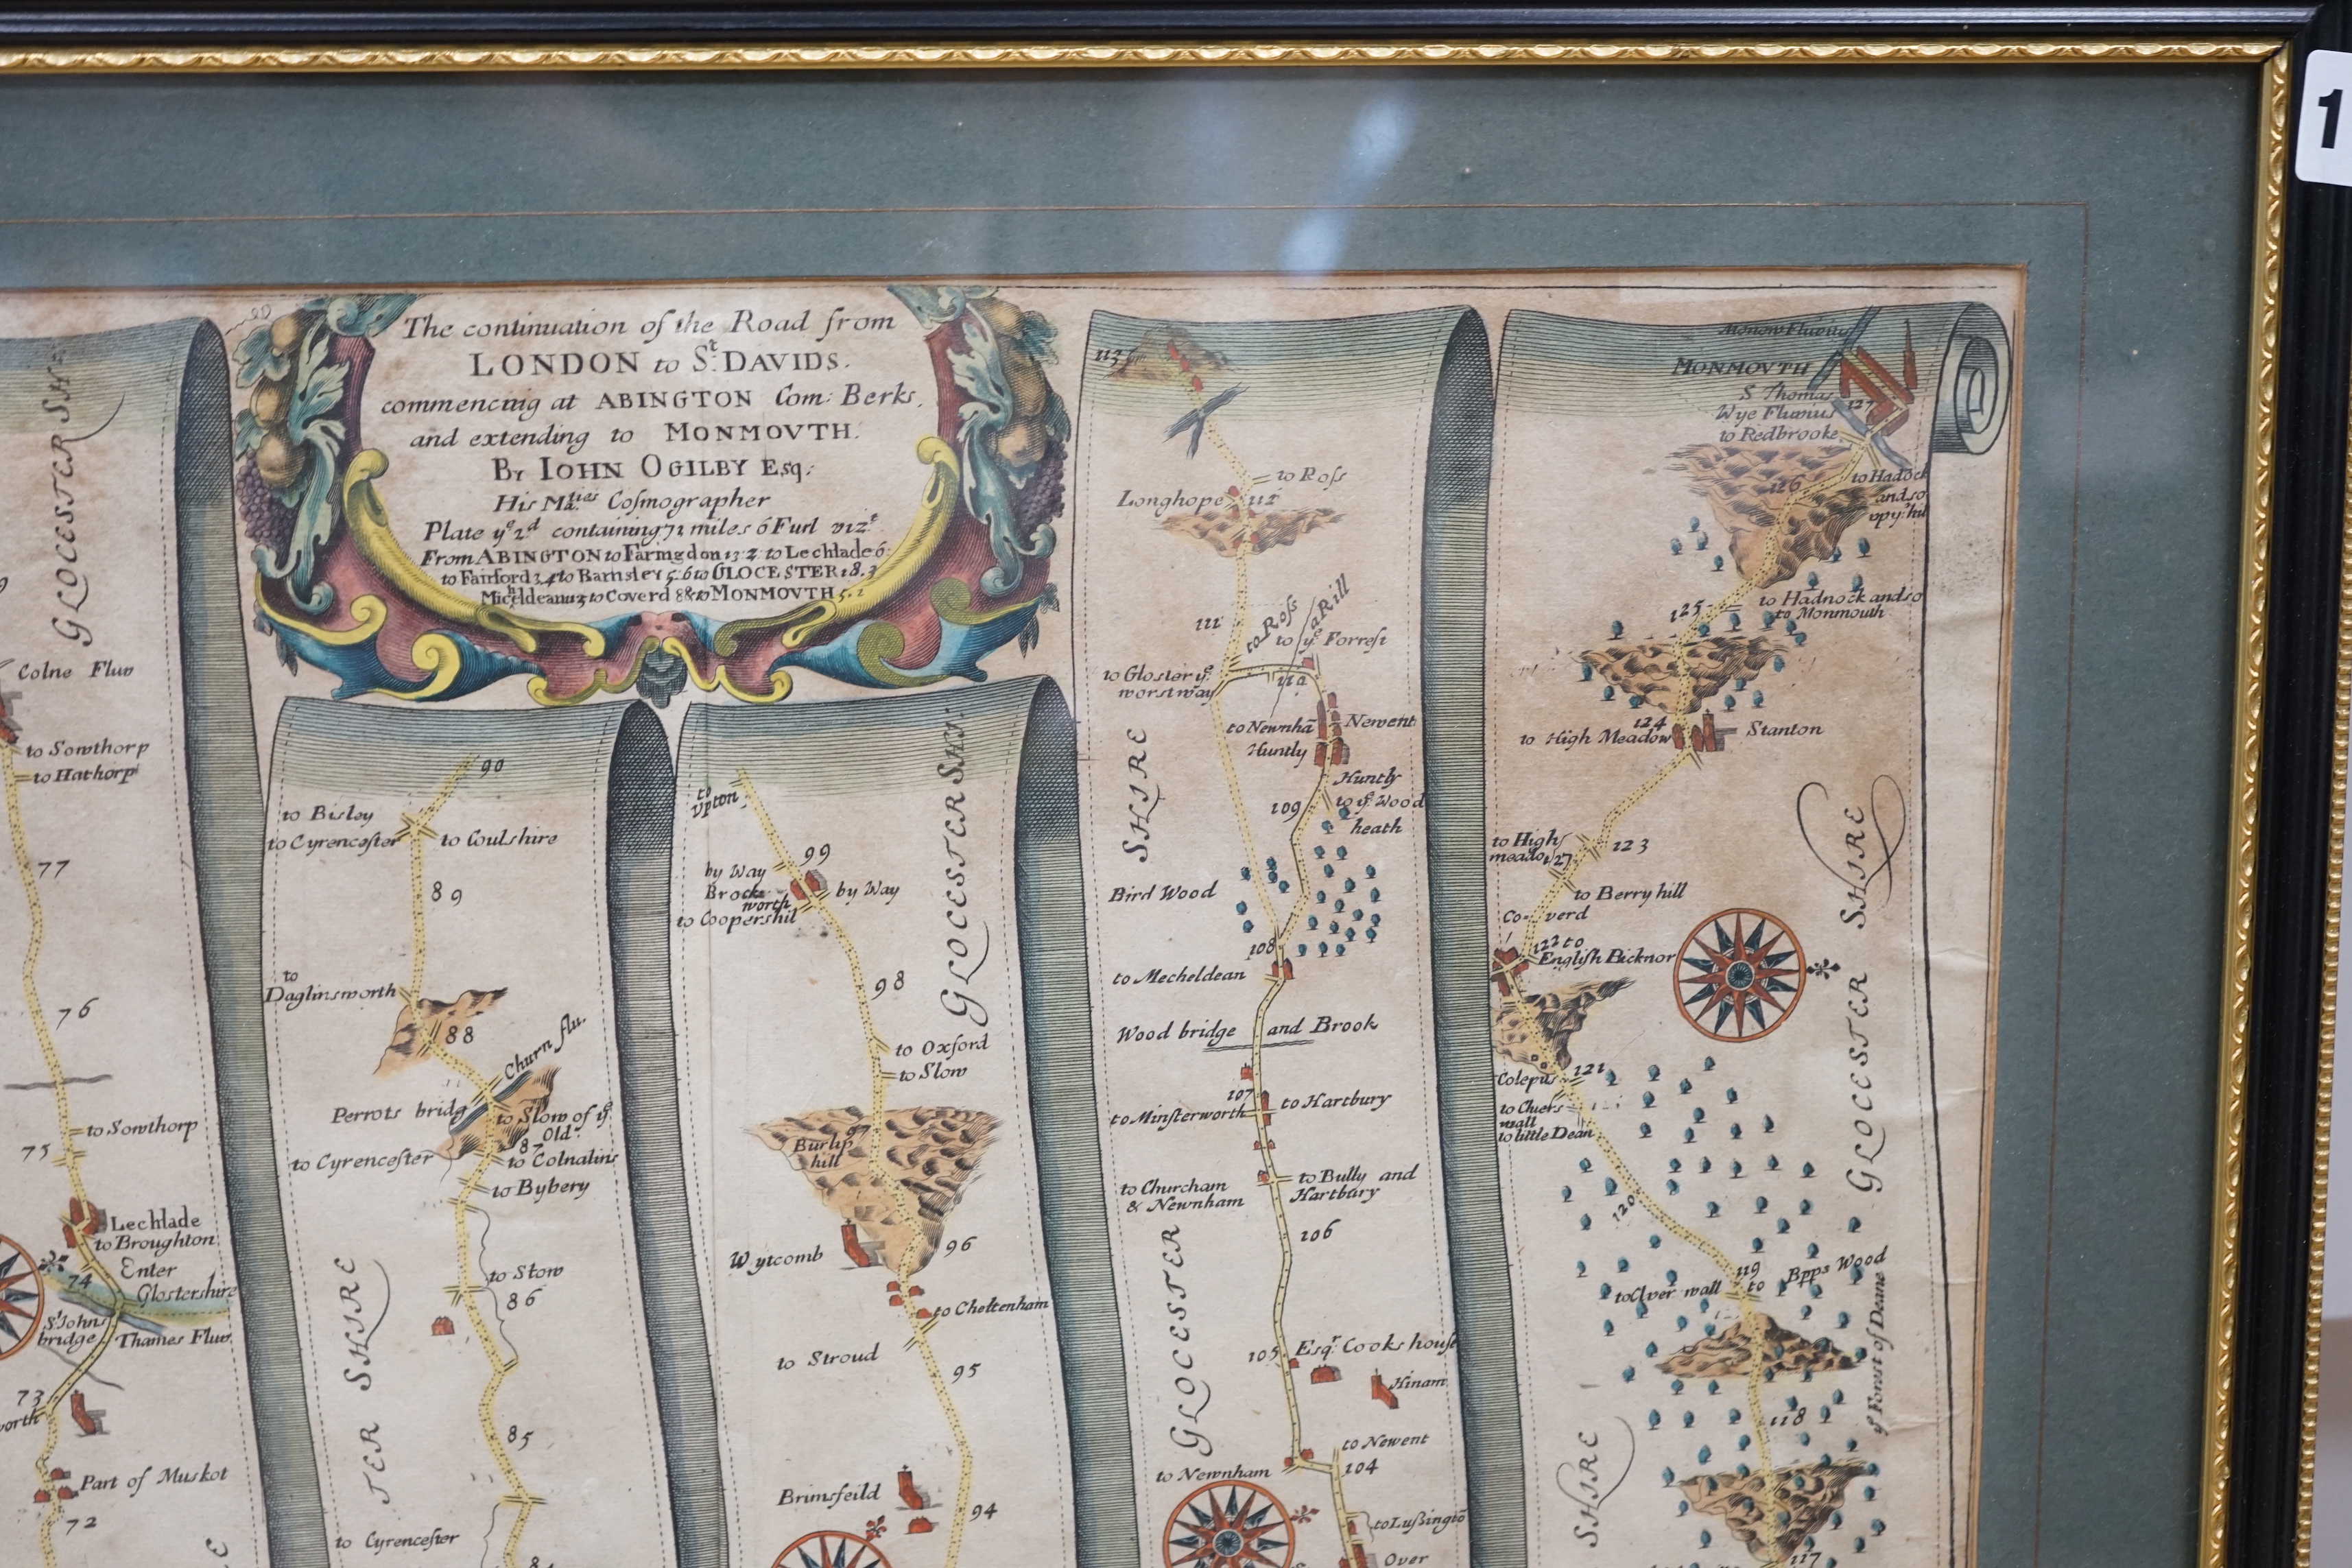 1
The continuation of the Road from
LONDON to St. DAVIDS.
commencing at ABINGTON Com: Berks,
and extending to MONMOVTH.
By IOHN OGILBY Esq:
His Maties Coſmographer
Plate ye 2d containing 71 miles 6 Furl vizt
From ABINGTON to Faringdon 13‘2 to Lechlade 6
to Fairford 3‘4 to Barnsley 5‘6 to GLOCESTER 18‘3
Micheldean 12 to Coverd 8 & to MONMOVTH 5‘1
GLOCESTER SHI
Colne Fluv
to Sowthorp
to Hathorp
77
76
to Sowthorp
75
Lechlade
to Broughton
Enter
Glostershire
74
St Johns
bridge
Thames Fluv.
73
Part of Muskot
72
90
to Bisley
to Cyrenceſter
to Coulshire
89
to
Daglinsworth
88
Churn flu.
Perrots bridg
to Slow of ye
Old
87
to Cyrenceſter
to Colnalins
to Bybery
to Stow
86
TER SHIRE
85
to Cyrenceſter
84
to
Vpton
99
by Way
Brock
worth
by Way
to Coopershil
98
GLOCESTER SHI
to Oxford
to Slow
97
Burlip
hill
Wytcomb
96
to Cheltenham
to Stroud
95
Brimsfeild
94
113
to Roſs
Longhope
112
111
to Roſs
a Rill
to ye Forreſt
to Gloster ye
worst way
110
to Newnhā
Newent
Huntly
Huntly
to ye Wood
heath
109
SHIRE
Bird Wood
108
to Mecheldean
Wood bridge and Brook
107
to Minſterworth
to Hartbury
to Churcham
& Newnham
to Bully and
Hartbury
106
GLOCESTER
105
Esqr. Cooks houſe
Hinam
to Newent
to Newnham
104
to Luſsingtō
Over
Monow Fluvius
MONMOVTH
S Thomas
127
Wye Fluvius
to Redbrooke
to Hadock
and so
vp ye hil
126
125
to Hadnock and so
to Monmouth
124
to High Meadow
Stanton
to High
meadow
123
to Berry hill
Coverd
122
to
English Bicknor
GLOCESTER SHIRE
Colepits
121
to Little Dean
120
119
to
Epps Wood
ye Forest of Deane
118
SHIRE
117